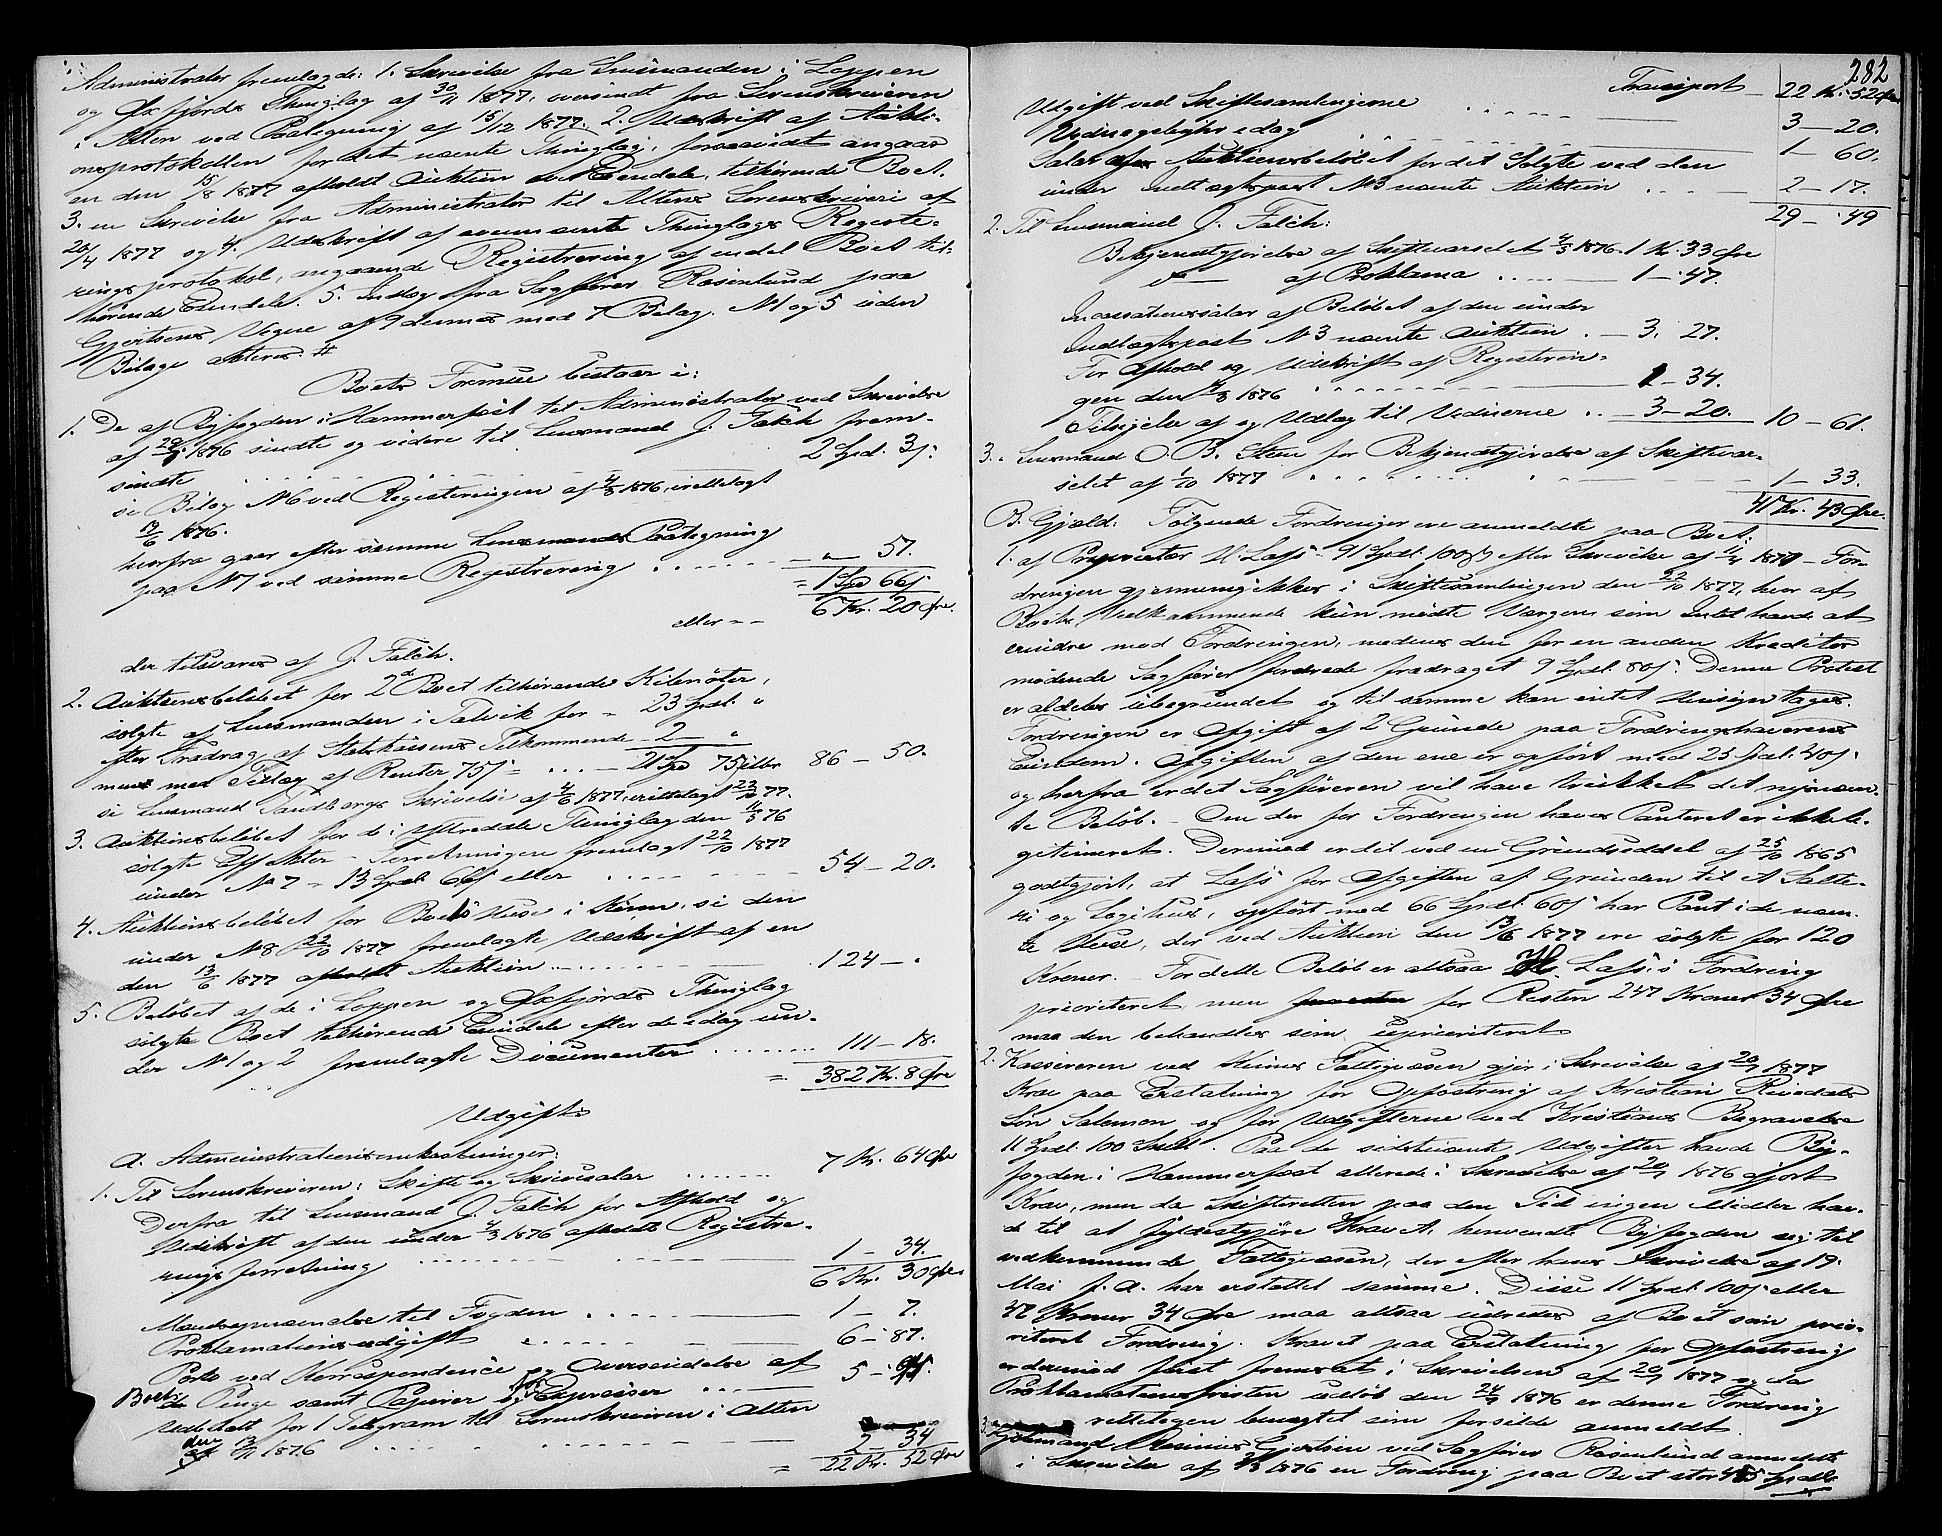 Administrator fremlagde: 1. Skrivelse fra Lensmanden i Loppen
og Øxfjords Thinglag af 30/11 1877, oversendt fra Sorenskriveren
i Alten ved Paategning af 15/12 1877. 2. Udskrift af Aukti-
onsprotokollen for det nævnte Thinglag, forsaavidt angaar
en den 15/8 1877 afholdt Auktion over Eiendele, tilhørende Boet.
3. en Skrivelse fra Administrator til Altens Sorenskriveri af
/4 1877 og 4. Udskrift af ovennævnte Thinglags Registe-
ringsprotokol, angaaende Registrering af endel Boet til-
hørende Eiendele. 5. Indlæg fra Sagfører Rosenlund paa
Gjertsens Vegne af 9 dennes med 7 Bilag. N 1 og 5 uden
Bilage akteres. #
Boets Formue bestaar i:
1. De af Byfogden i Hammerfest til Administrator ved Skrivelse
af 1876 sendte og videre til Lensmand J. Falch frem-
sendte . . . 2 Spd. 3 s.
se Bilag N 6 ved Registreringen af 4/3 1876, irettelagt
13/6 1876.
herfra gaar efter samme Lensmands Paategning
paa N 7 ved samme Registrering . . . . „ — 57.
= 1 Spd 66 s
eller = = 6 Kr. 20 Øre.
der tilsvares af J. Falch.
2. Auktionsbeløbet for 2de Boet tilhørende Kilenøter,
solgte af Lensmanden i Talvik for = 23 Spd. „
efter Fradrag af Statskassens Tilkommende — 2 — „
men med Tillæg af Renter 75 s = . . . — 21 Spd 75 s eller 86 — 50.
se Lensmand Tandbergs Skrivelse af 4/6 1877, irettelagt 22/10 77.
3. Auktionsbeløbet for de i Thinglag den 76
solgte Effekter — Forretningen fremlagt 22/10 1877
under N 7 = 13 Spd. 66 s eller . . . 54 — 20.
4. Auktionsbeløbet for Boets Huse i Køven, se den
under N 8 22/10 1877 fremlagte Udskrift af en
den 13/6 1877 afholdt Auktion . . . 124 — „
5. Beløbet af de i Loppen og Øxfjords Thinglag
solgte Boet tilhørende Eiendele efter de idag un-
der N 1 og 2 fremlagte Documenter . . . 111 — 18.
= 382 Kr. 8 Øre
Udgift
A. Administrationsomkostninger:
1. Til Sorenskriveren: Skifte og Skrivesalar . . . 7 Kr. 64 Øre
Derfra til Lensmand J. Falch for Afhold og
Udskrift af den under 4/3 1876 afholdte Registre-
ringsforretning . . . 1 — 34.
6 Kr. 30 Øre
til Fogden . . . 1 — 7.
Proklamationsudgift . . . 6 — 87.
Porto ved Korrespondence og Oversendelse af
Boets Penge samt Papirer og Expresser . . . 5 —
Udbetalt for 1 Telegram til Sorenskriveren i Alten
den 1876 . . . 2 — 34
= 22 Kr. 52 Øre
282
Transport — 22 Kr. 52 Øre
Udgift ved Skiftesamlingerne . . . 3 — 20.
Vidnegodtgj. idag . . . 1 — 60.
Salar Auktionsbeløbet for det Solgte ved den
under Indtægtspost N 3 nævnte Auktion . . . 2 — 17.
29 — 49
2. Til Lensmand J. Falch:
Bekjendtgjørelse af Skiftevarslet 4/3 1876. 1 Kr. 33 Øre
af Proklama . . . 1 — 47.
Incassationssalar af Beløbet af den under
Indtægtspost N 3 nævnte Auktion . — 3. 27.
For Afhold og Udskrift af Registrerin-
gen den 4/3 1876 . . . 1 — 34.
Tilsigelse af og Udlæg til Vidnerne . . — 3 — 20. 10 — 61.
3. Lensmand O. B. Steen for Bekjendtgjørelse af Skiftevar-
selet af 1/10 1877 . . . 1 — 33.
41 Kr. 43 Øre.
B. Gjæld: Følgende Fordringer ere anmeldte paa Boet:
1. af Proprietær Lassi 91 Spd. 100 s efter Skrivelse af 11/4 1877 — For-
dringen gjennemgikkes i Skiftesamlingen den 22/10 1877, hvor af
Boets Vedkommende kun mødte Værgen som Intet havde at
erindre mod Fordringen, medens den for en anden Kreditor
mødende Sagfører fordrede fradraget 9 Spd. 80 s. Denne Protest
er aldeles ubegrundet og til samme kan intet Hensyn tages.
Fordringen er Afgift af 2 Grunde paa Fordringshaverens
Eiendom. Afgiften af den ene er opført med 25 Spd. 40 s.
og herfra er det Sagføreren vil have trukket det nysnævn-
te Beløb. — Den der for Fordringen haves Panteret er ikke le-
gitimeret. Dermed er det ved en Grundseddel af 25/10 1865
godtgjort, at Lassi for Afgiften af Grunden til et Salte-
ri og Logihus, opført med 66 Spd. 60 s har Pant i de nævn-
te Huse, der ved Auktion den 13/6 1877 ere solgte for 120
Kroner. — For dette Beløb er altsaa Lassi's Fordring
prioriteret men for Resten 247 Kroner 34 Øre
maa den behandles som uprioriteret
2. Kassereren ved Fattigvæsen gjør i Skrivelse af 20/7 1877
Krav paa Erstatning for Opfostring af Kristian
Søn Salomon og for Udgifterne ved Kristians Begravelse
11 Spd. 100 Skill. Paa de sidstnævnte Udgifter havde By-
fogden i Hammerfest allerede i Skrivelse af 20/7 1876 gjort
Krav, men da Skifteretten paa den Tid ingen Midler hav-
de til at fyldestgjøre Kravet, henvendte Byfogden sig til
vedkommende Fattigvæsen, der efter hans Skrivelse af 19.
Mai f. A. har erstattet samme. Disse 11 Spd. 100 s eller
47 Kroner 34 Øre maa altsaa udredes af Boet som prio-
riteret Fordring. Kravet paa Erstatning for Opfostring
er dermed først fremsat i Skrivelsen af 20/7 1877 og da
Proklamationsfristen udløb den 24/9 1876 er denne Fordring
rettelagen benægtet som forsilde anmeldt.
3. Rasmus Gjertsen ved Sagfører Rosenlund anmeldte
i Skrivelse af 1876 en Fordring paa Boet stor 485 Spd.